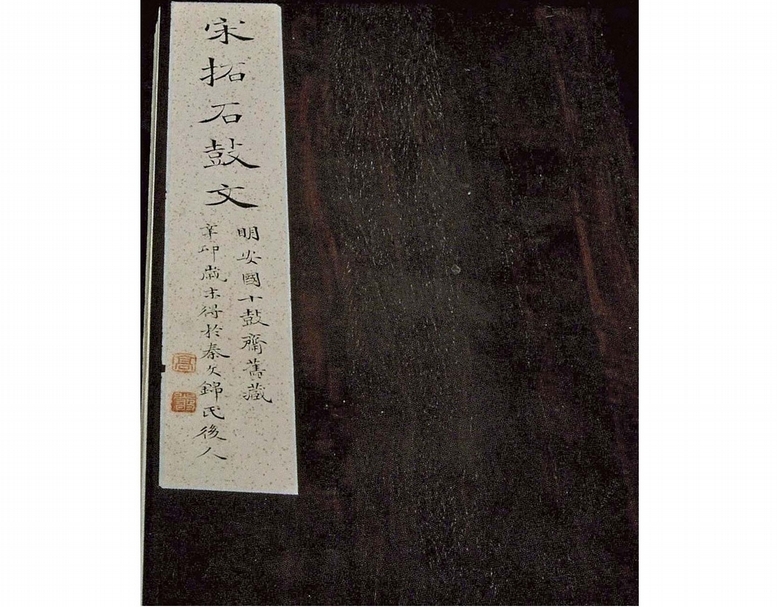 宋拓石鼓文
明安國十鼓齋舊藏
辛卯歲末得於秦文錦氏後人